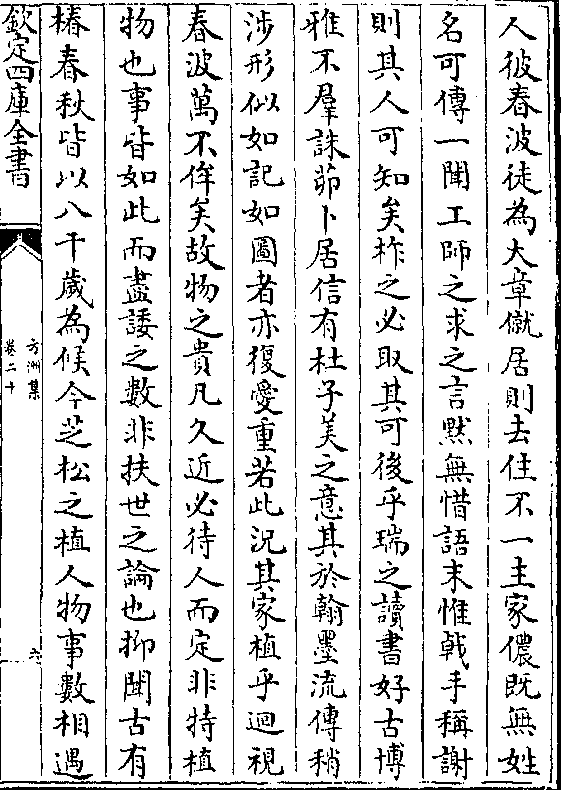 人彼春波徒為大章僦居則去住不一主家儂既無姓
名可傳一聞工師之求之言黙無惜語末惟戟手稱謝
則其人可知矣柞之必取其可後乎瑞之讀書好古博
雅不羣誅茆卜居信有杜子美之意其於翰墨流傳稍
涉形似如記如圖者亦復愛重若此況其家植乎迴視
春波萬不侔矣故物之貴凡久近必待人而定非特植
物也事皆如此而盡諉之數非扶世之論也抑聞古有
椿春秋皆以八千歲為候今芝松之植人物事數相遇
欽定四庫全書
方洲集
卷二十
六